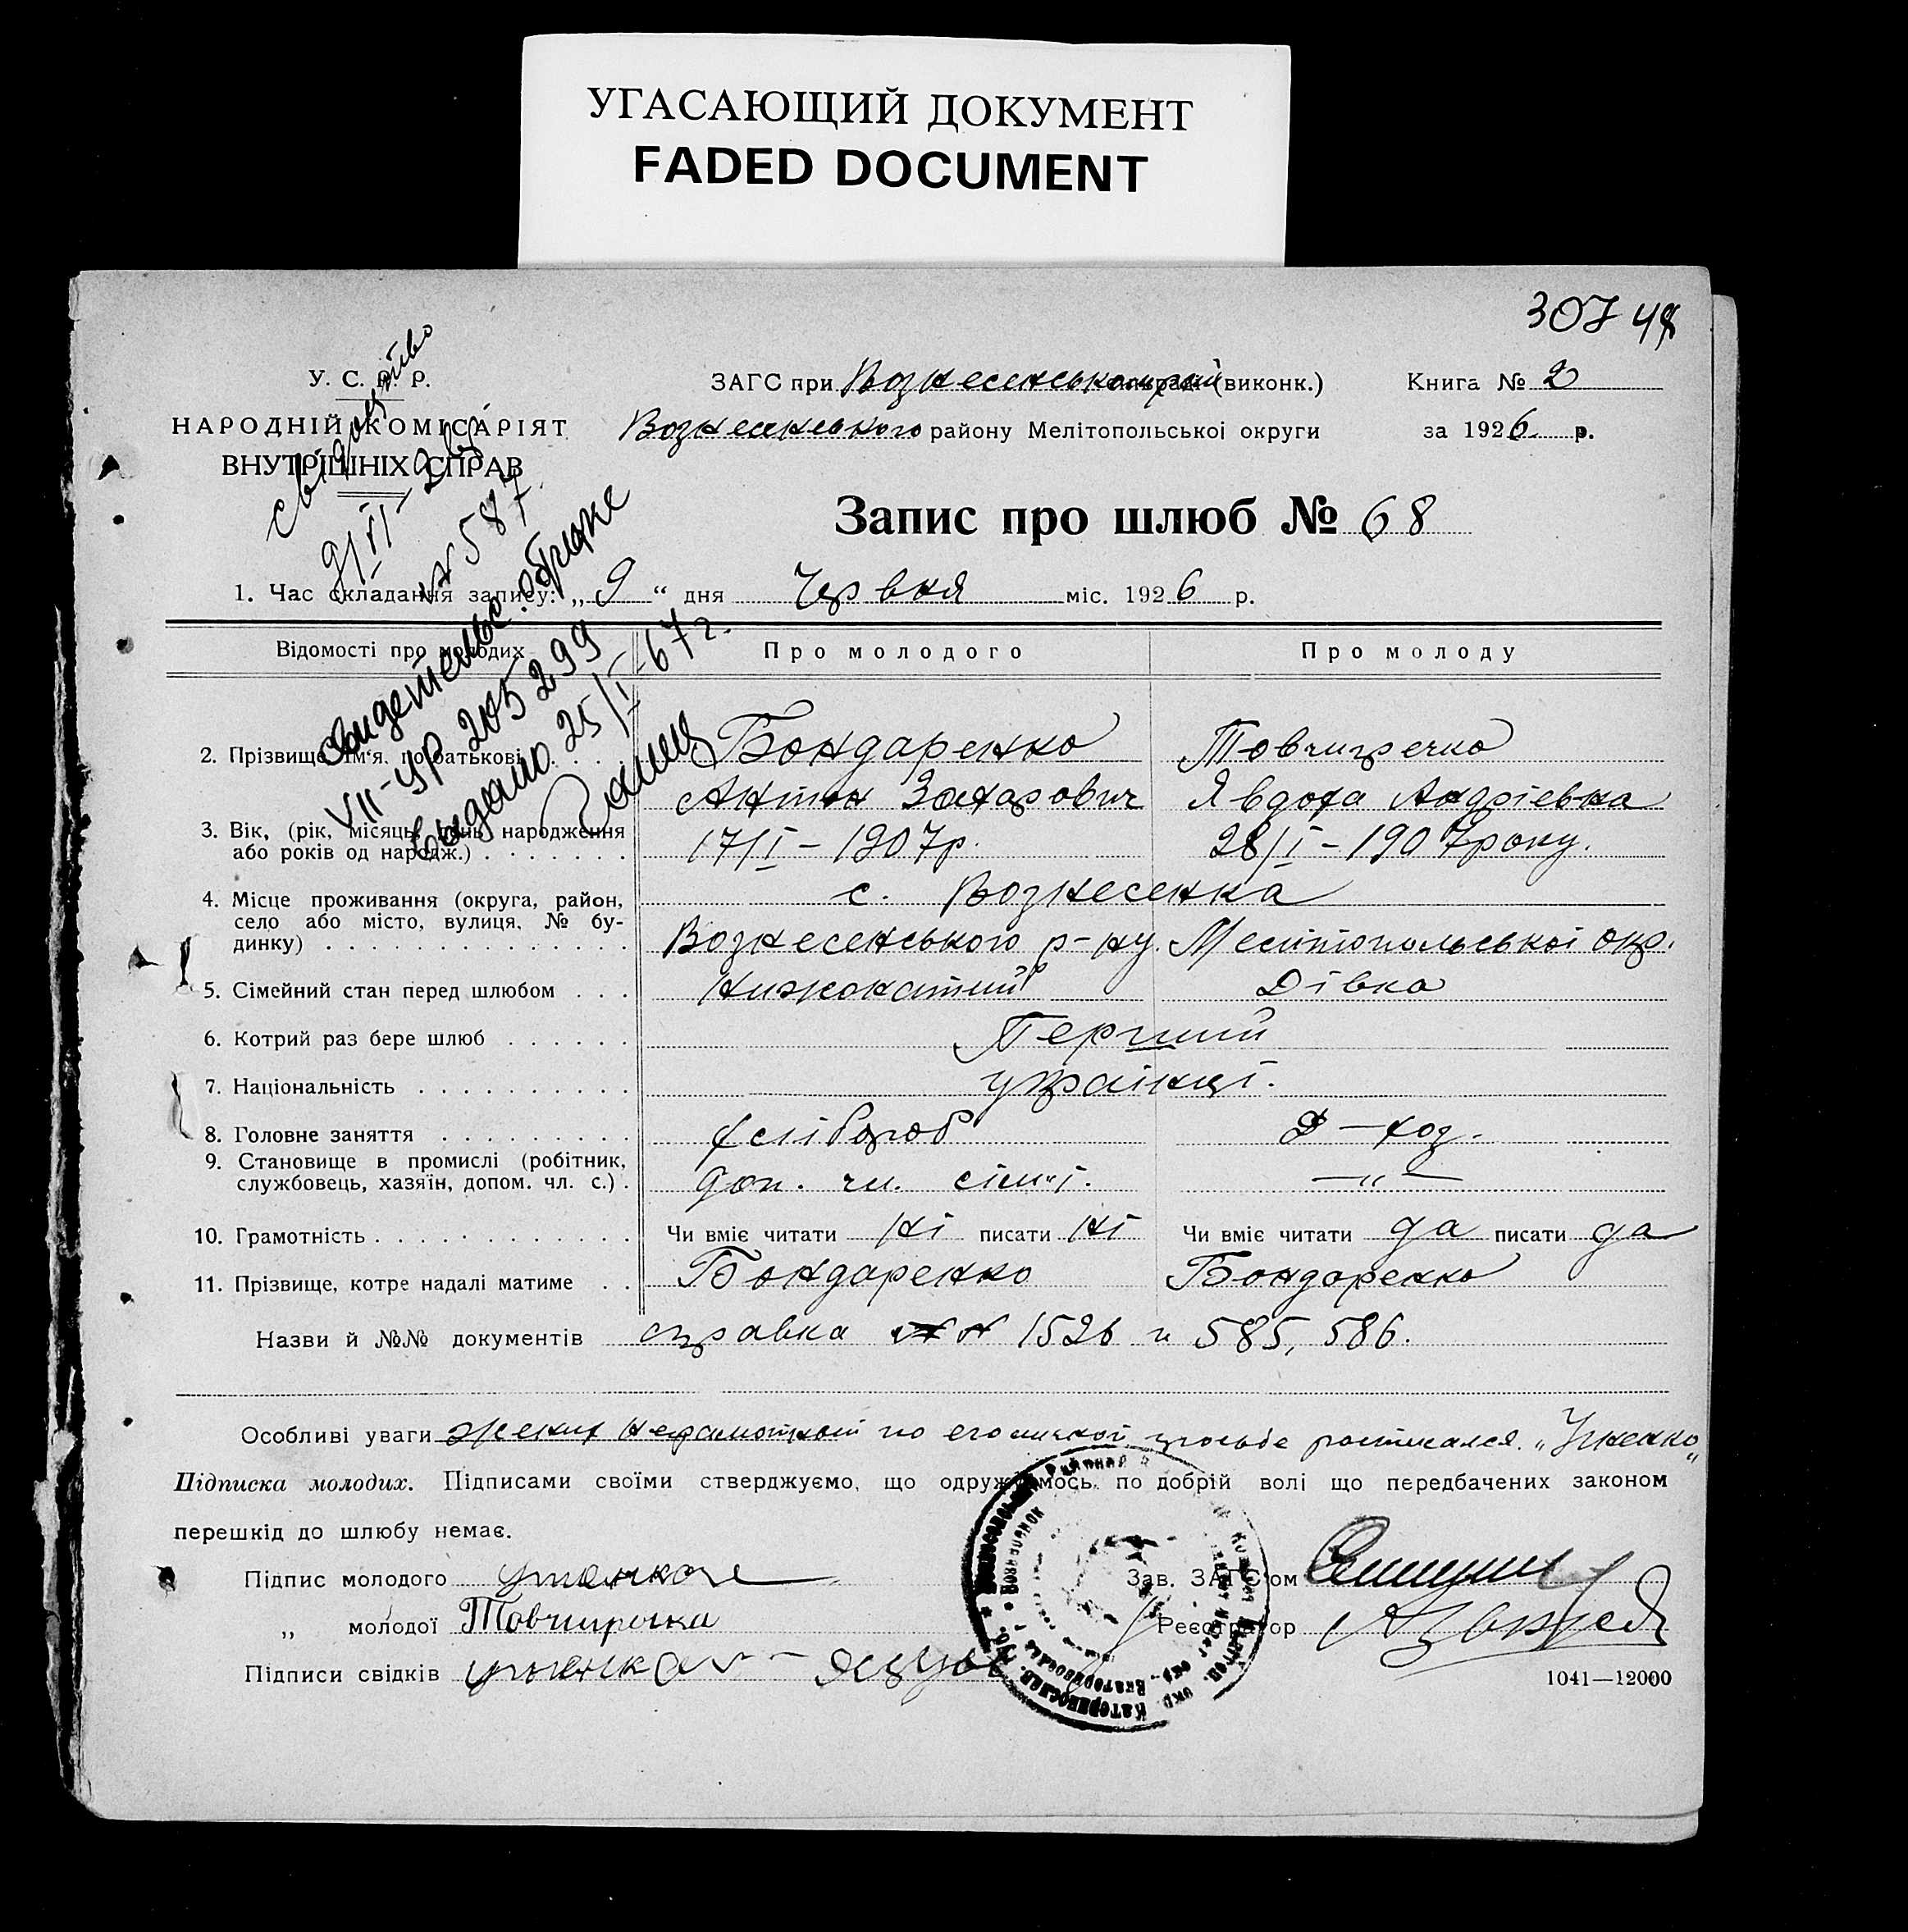 УГАСАЮЩИЙ ДОКУМЕНТ
FADED DOCUMENT
307 48
У. С. Р. Р.
НАРОДНІЙ КОМІСАРІЯТ
ВНУТРІШНІХ СПРАВ
ЗАГС при Вознесенському (виконк.)
Книга № 2
Вознесенського району Мелітопольської округи
за 1926 р.
свідоцтво
9/VI
№ 587
VII-УР 205299
выдано 25/I-67 г.
Запис про шлюб № 68
1. Час складання запису: „9“ дня Червня міс. 1926 р.
Відомості про молодих
Про молодого
Про молоду
2. Прізвище, ім'я, по батькові
Бондаренко
Антон Захарович
Явдоха Андріевна
3. Вік, (рік, місяць, день народження
або років од народж.)
17/I – 1907р.
28/I – 1907 року.
4. Місце проживання (округа, район,
село або місто, вулиця, № бу-
динку)
с. Вознесенка
Вознесенського р-ну. Мелітопольської окр.
5. Сімейний стан перед шлюбом
Нижонатий
Дівка
6. Котрий раз бере шлюб
Перший
7. Національність
українці.
8. Головне заняття
хлібороб
Д – хоз.
9. Становище в промислі (робітник,
службовець, хазяїн, допом. чл. с.)
доп. чл. сім'ї.
—„—
10. Грамотність
Чи вміє читати Ні писати Ні
Чи вміє читати да писати да
11. Прізвище, котре надалі матиме
Бондаренко
Бондаренко
Назви й №№ документів справка № 1526 и 585, 586.
Особливі уваги жених неграмотный по его личной просьбе росписался
Підписка молодих. Підписами своїми стверджуємо, що одружуємось по добрій волі що передбачених законом
перешкід до шлюбу немає.
Підпис молодого
„ молодої
Підписи свідків
Зав. ЗАГС'ом
Реєстратор
1041—12000